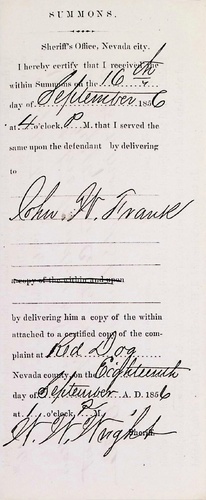 SUMMONS.
Sheriff's Office, Nevada city.
I hereby certify that I received the
within Summons on the 16th
day of September 1856
at 4 o'clock, P M. that I served the
same upon the defendant by delivering
to
John W. Frank
a copy of the within and upon
by delivering him a copy of the within
attached to a certified copy of the com-
plaint at Red Dog
Nevada county on the Eighteenth
day of September A. D. 1856
at 1 o'clock, P M.
W. W. Wright Sheriff.